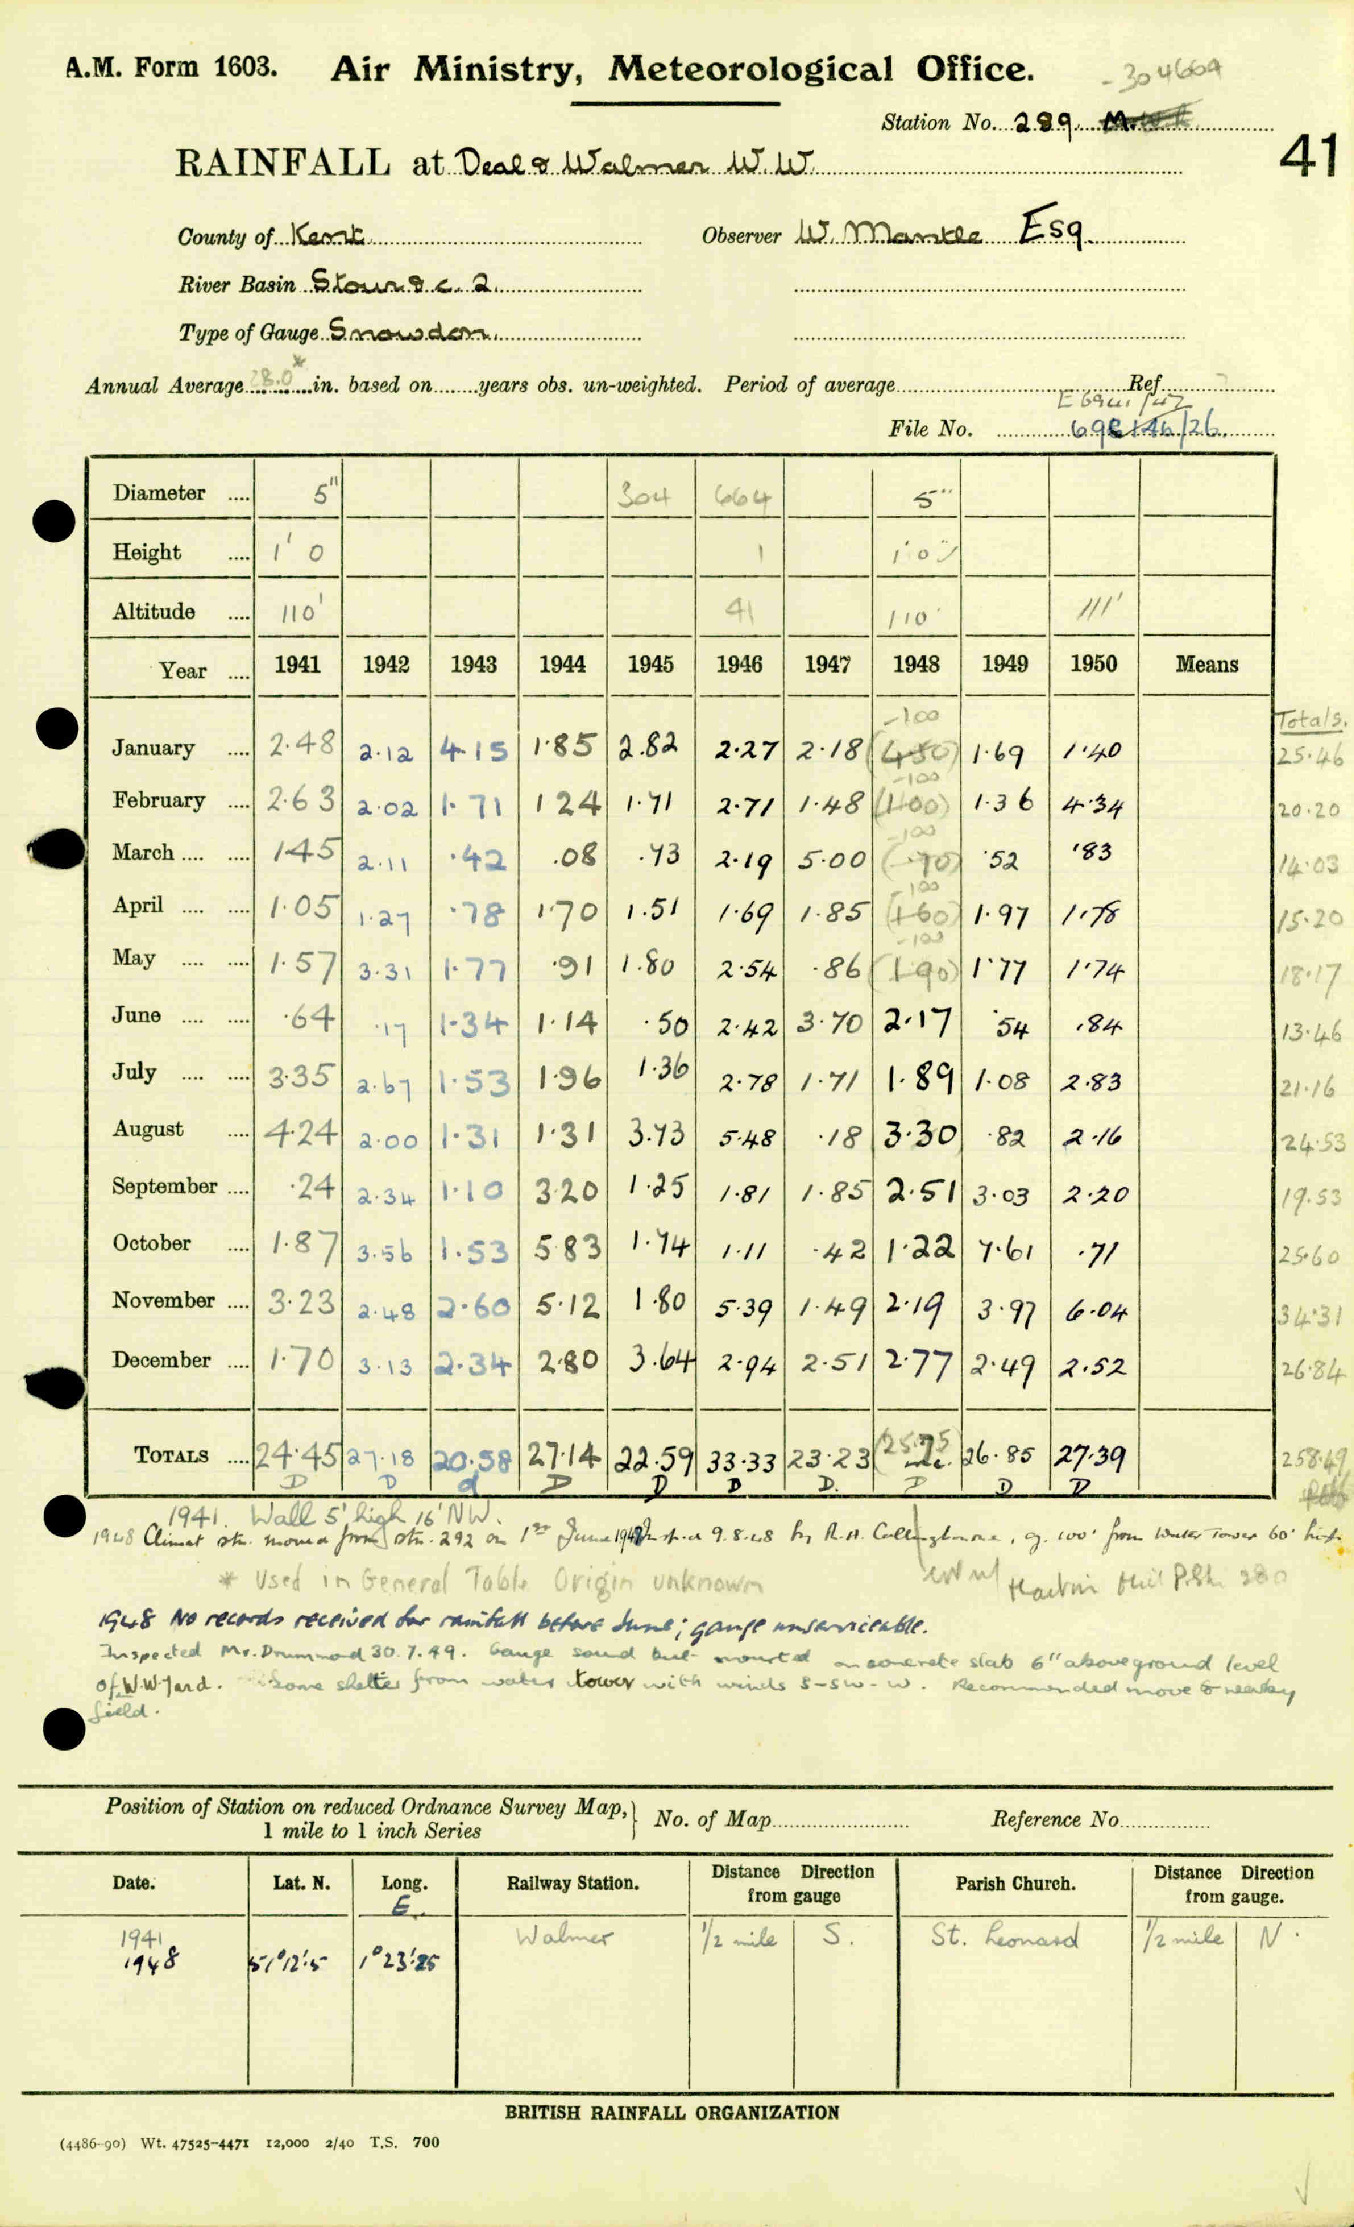 A.M. Form 1603. Air Ministry, Meteorological Office. -304664
Station No. 289
41
RAINFALL at Deal & Walmer W.W.
County of Kent Observer W. Mantle Esq.
River Basin Stour &c. 2
Type of Gauge Snowdon
Annual Average 28.0* in. based on years obs. un-weighted. Period of average Ref.
File No.
Diameter .... 5" 304 664 5"
Height .... 1' 0 1 1' 0"
Altitude .... 110' 41 110' 111'
Year .... 1941 1942 1943 1944 1945 1946 1947 1948 1949 1950 Means
Totals.
-100
January .... 2.48 2.12 4.15 1.85 2.82 2.27 2.18 (4.50) 1.69 1.40 25.46
-100
February .... 2.63 2.02 1.71 1 24 1.71 2.71 1.48 (1.00) 1.36 4.34 20.20
-100
March .... .... 1.45 2.11 .42 .08 .73 2.19 5.00 (.70) .52 .83 14.03
-100
April .... .... 1.05 1.27 .78 1.70 1.51 1.69 1.85 (1.60) 1.97 1.78 15.20
-100
May .... .... 1.57 3.31 1.77 .91 1.80 2.54 .86 (1.90) 1.77 1.74 18.17
June .... .... .64 .17 1.34 1.14 .50 2.42 3.70 2.17 .54 .84 13.46
July .... .... 3.35 2.67 1.53 1.96 1.36 2.78 1.71 1.89 1.08 2.83 21.16
August .... 4.24 2.00 1.31 1.31 3.73 5.48 .18 3.30 .82 2.16 24.53
September .... .24 2.34 1.10 3.20 1.25 1.81 1.85 2.51 3.03 2.20 19.53
October .... 1.87 3.56 1.53 5.83 1.74 1.11 .42 1.22 7.61 .71 25.60
November .... 3.23 2.48 2.60 5.12 1.80 5.39 1.49 2.19 3.97 6.04 34.31
December .... 1.70 3.13 2.34 2.80 3.64 2.94 2.51 2.77 2.49 2.52 26.84
TOTALS .... 24.45 27.18 20.58 27.14 22.59 33.33 23.23 (25.75) 26.85 27.39 258.49
D D d D D D D. D D D
1941. Wall 5' high 16' NW.
1948 Climat stn. moved from stn. 292 on 1st June 1948 Insp.d 9.8.48 by R.H. Collingbourne, g. 100' from Water Tower 60' high
* Used in General Table Origin unknown
1948 No records received for rainfall before June; gauge unserviceable.
Inspected Mr. Drummond 30.7.49. Gauge sound but mounted on concrete slab 6" above ground level
of W.W. yard. Some shelter from water tower with winds S-SW-W. Recommended move to nearby
field.
Position of Station on reduced Ordnance Survey Map, 1 mile to 1 inch Series } No. of Map Reference No
Date. Lat. N. Long. E. Railway Station. Distance Direction from gauge Parish Church. Distance Direction from gauge.
1941 Walmer 1/2 mile S. St. Leonard 1/2 mile N.
1948 51°12'.5 1°23'.25
BRITISH RAINFALL ORGANIZATION
(4486-90) Wt. 47525-4471 12,000 2/40 T.S. 700